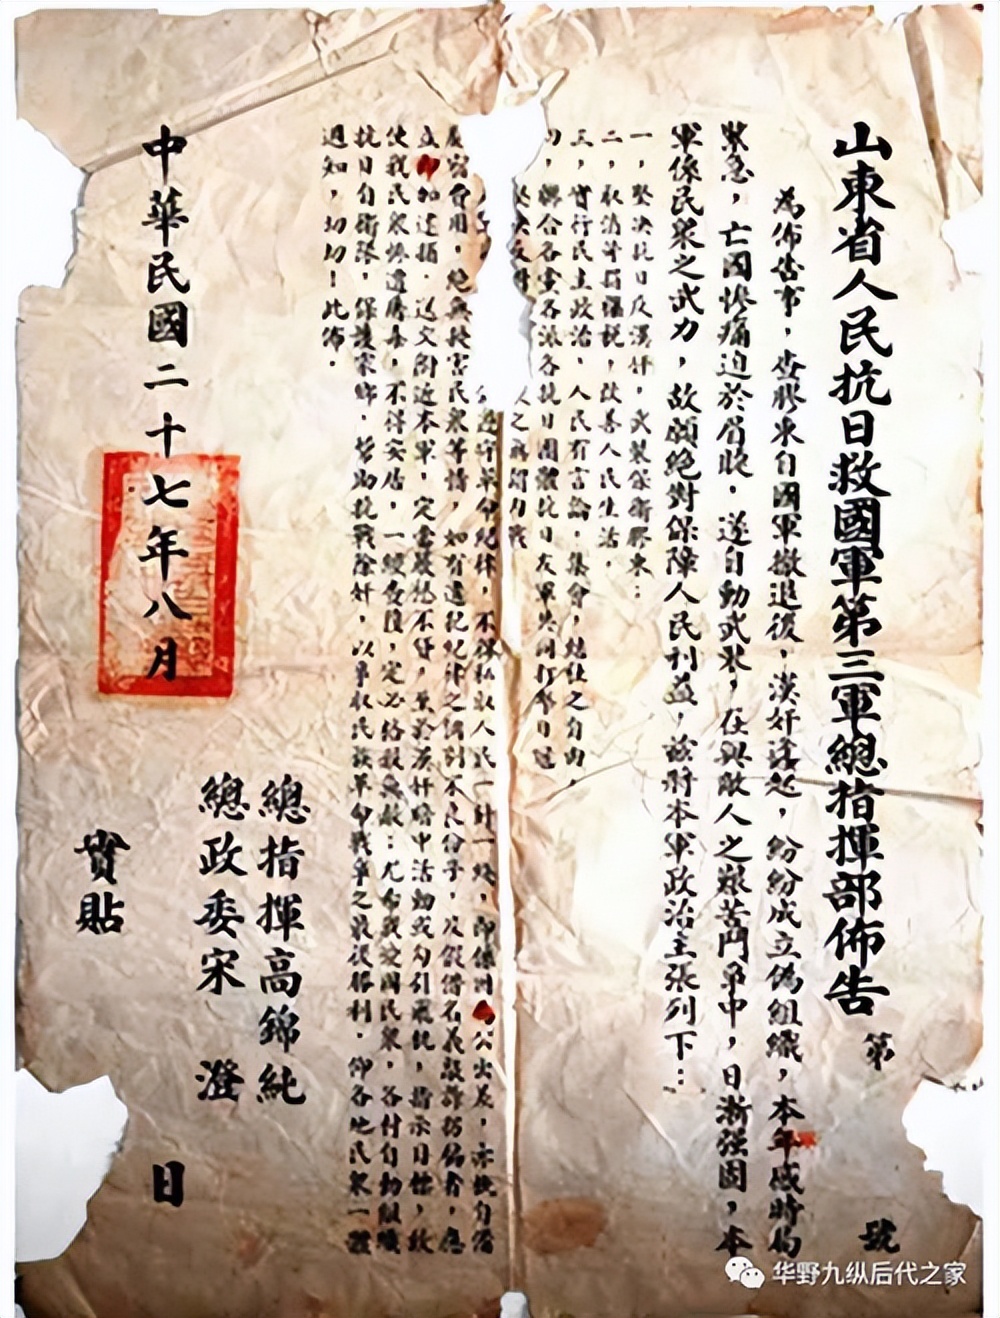 山東省人民抗日救國軍第三軍總指揮部佈告
第 號
為佈告事，查膠東自國軍撤退後，漢奸蜂起，紛紛成立偽組織，本年感時局
緊急，亡國慘痛迫於眉睫，遂自動武裝，在與敵人之艱苦鬥爭中，日漸强固，本
軍係民衆之武力，故願絕對保障人民利益，茲將本軍政治主張列下：
一，堅决抗日反漢奸，武裝保衛膠東：
二，取消苛捐雜稅，改善人民生活，
三，實行民主政治，人民有言論，集會，結社之自由，
，聯合各黨各派各抗日團體抗日友軍共同打擊日寇
堅决反對
遵守革命紀律，不得私取人民一針一綫，即係因公出差，亦概自備
絕無擾害民衆等情，如有違犯紀律之個別不良份子，及假借名義敲詐招搖者，應
立即加逮捕，送交附近本軍，定當嚴懲不貸，至於漢奸暗中活動或勾引飛機，指示目標，致
使我民衆慘遭屠毒，不得安居，一經查覆，定必格殺無赦：尤希我愛國民衆，各村自動組織
抗日自衛隊，保護家鄉，幫助抗戰除奸，以爭取民族革命戰爭之最後勝利，仰各地民衆一體
週知，切切！此佈。
總指揮高錦純
總政委宋 澄
中華民國二十七年八月 日
實貼
华野九纵后代之家